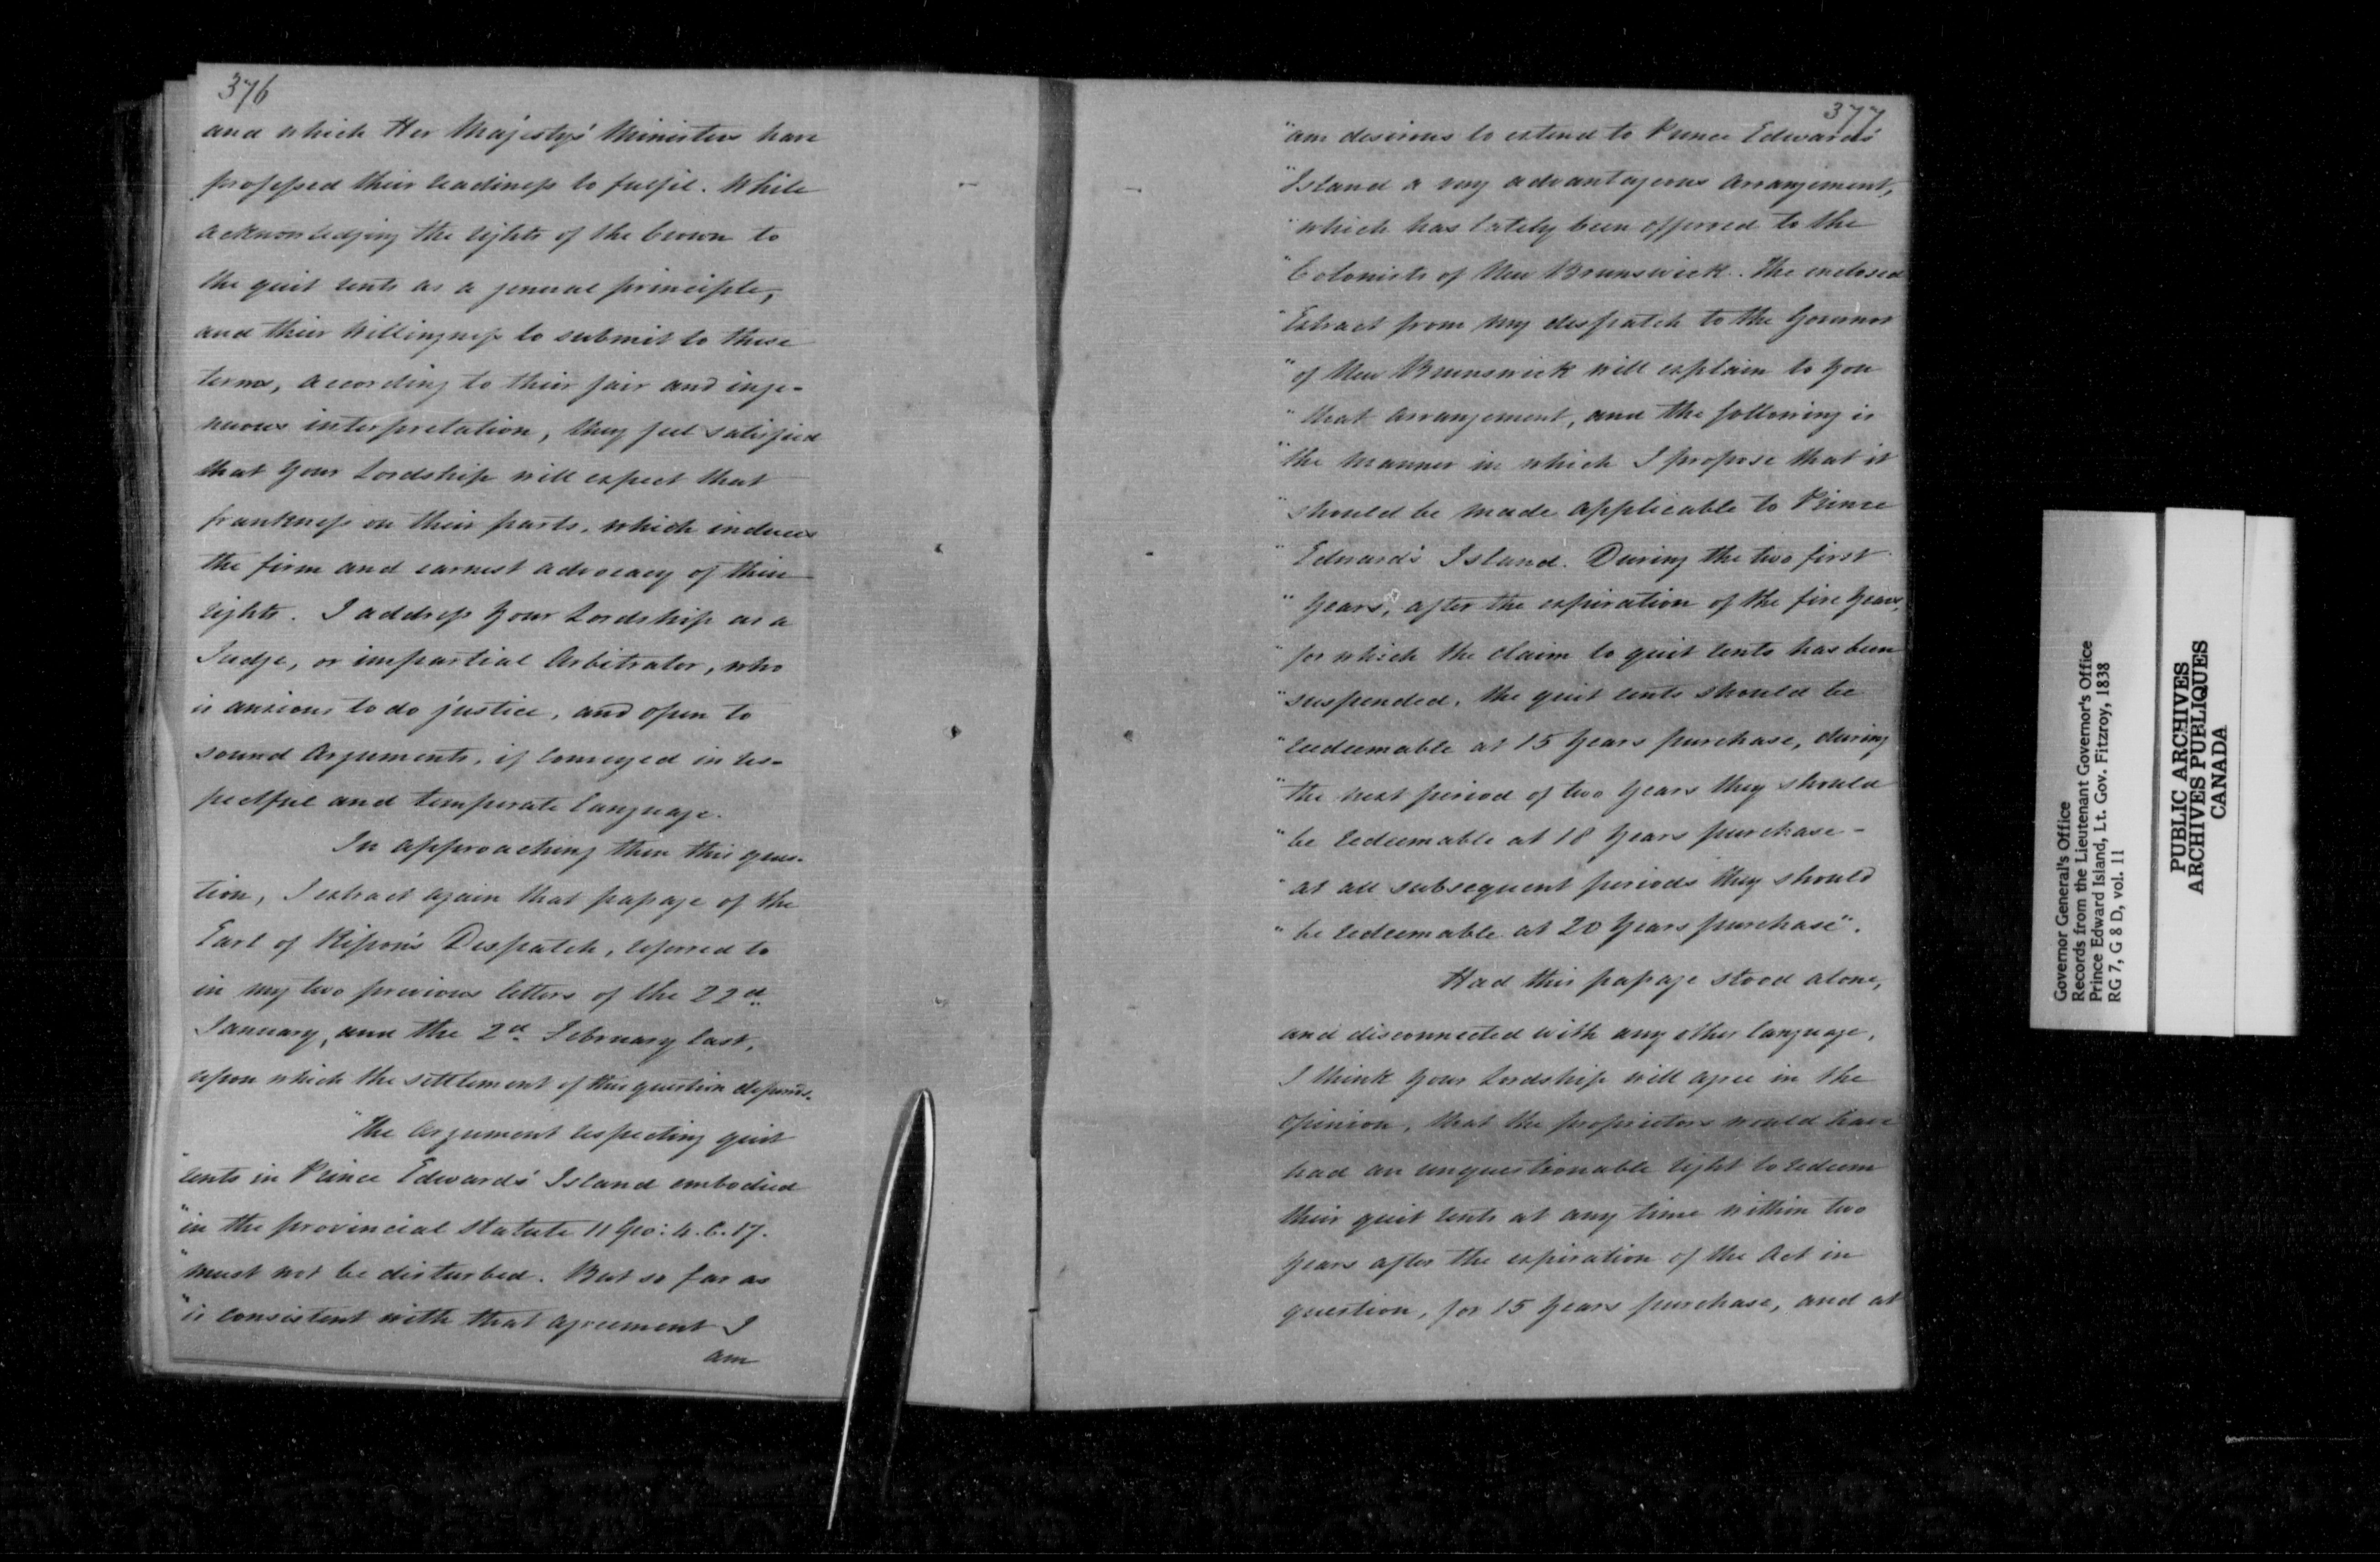 376
and which Her Majesty's Ministers have
professed their readiness to fulfil. While
acknowledging the rights of the Crown to
the quit rents as a general principle,
and their willingness to submit to these
terms, according to their fair and inge-
nuous interpretation, they feel satisfied
that your Lordship will expect that
frankness on their parts, which induces
the firm and earnest advocacy of their
rights. I address your Lordship as a
Judge, or impartial Arbitrator, who
is anxious to do justice, and open to
sound Arguments, if conveyed in res-
pectful and temperate language.
In approaching then this ques-
tion, I extract again that passage of the
Earl of Ripon's Despatch, referred to
in my two previous letters of the 22d
January, and the 2d February last,
upon which the settlement of this question depends.
"The Argument respecting quit
"rents in Prince Edward's Island embodied
"in the provincial statute 11 Geo: 4. C. 17.
"must not be disturbed. But so far as
"is consistent with that agreement I
am
377
"am desirous to extend to Prince Edward's
"Island a very advantageous arrangement,
"which has lately been offerred to the
"Colonists of New Brunswick. The enclosed
"Extract from my despatch to the Governor
"of New Brunswick will explain to you
"that arrangement, and the following is
"the manner in which I propose that it
"should be made applicable to Prince
"Edward's Island. During the two first
"years, after the expiration of the five years,
"for which the claim to quit rents has been
"suspended, the quit rents should be
"redeemable at 15 years purchase, during
"the next period of two years they should
"be redeemable at 18 years purchase -
"at all subsequent periods they should
"be redeemable at 20 years purchase".
Had this passage stood alone,
and disconnected with any other language,
I think your Lordship will agree in the
opinion, that the proprietors would have
had an unquestionable right to redeem
their quit rents at any time within two
years after the expiration of the Act in
question, for 15 years purchase, and at
Governor General's Office
Records from the Lieutenant Governor's Office
Prince Edward Island, Lt. Gov. Fitzroy, 1838
RG 7, G 8 D, vol. 11
PUBLIC ARCHIVES
ARCHIVES PUBLIQUES
CANADA